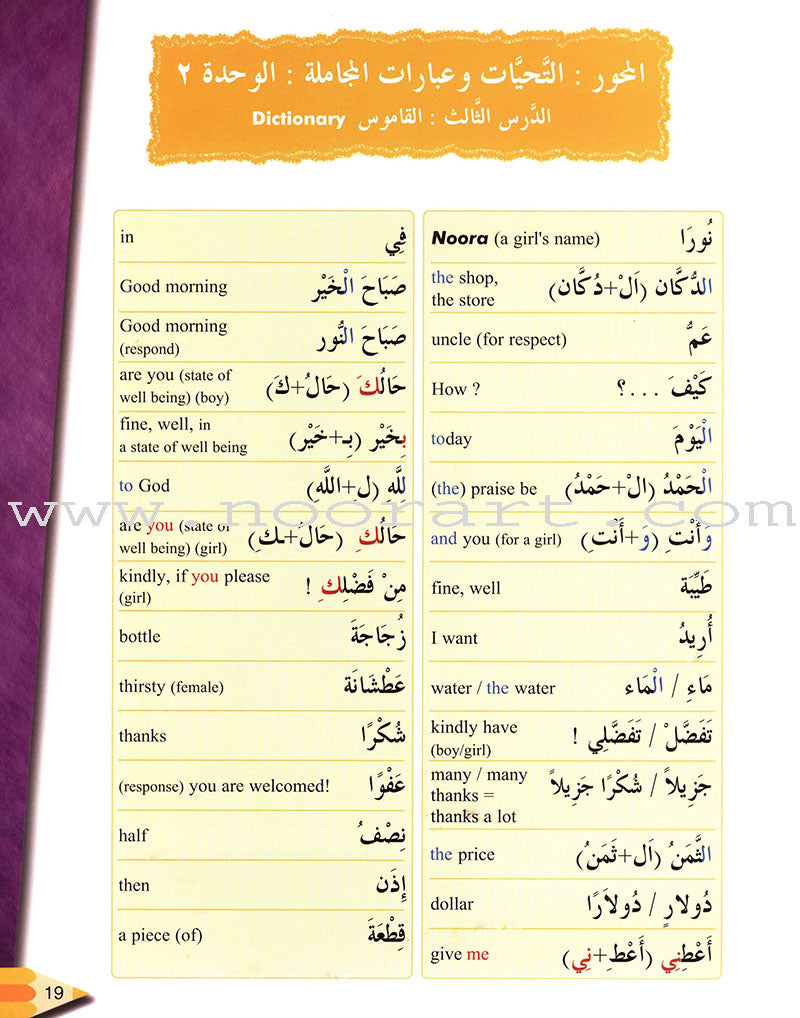 المحور : التَّحيَّات وعبارات المجاملة : الوحدة ٢
الدَّرس الثَّالث : القاموس Dictionary
Noora (a girl's name) نُورَا
the shop,
the store الدُّكَّان (اَلْ+دُكَّان)
uncle (for respect) عَمُّ
How ? كَيْفَ ...؟
today الْيَوْمَ
(the) praise be الْحَمْدُ (الْ+حَمْدُ)
and you (for a girl) وَأَنْتِ (و+أَنْتِ)
fine, well طَيِّبَة
I want أُرِيدُ
water / the water مَاءِ / الْمَاء
kindly have
(boy/girl) تَفَضَّلْ / تَفَضَّلِي !
many / many
thanks =
thanks a lot جَزِيلاً / شُكْرًا جَزِيلاً
the price الثَّمَنُ (اَل+ثَمَنُ)
dollar دُولارٍ / دُولاَرًا
give me أَعْطِنِي (أَعْطِ+نِي)
in فِي
Good morning صَبَاحَ الْخَيْر
Good morning
(respond) صَبَاحَ النُّور
are you (state of
well being) (boy) حَالُكَ (حَالُ+كَ)
fine, well, in
a state of well being بِخَيْر (بِـ+خَيْر)
to God للَّهِ (ل+اللَّهِ)
are you (state of
well being) (girl) حَالُكِ (حَالُ+ـكِ)
kindly, if you please
(girl) مِنْ فَضْلِكِ !
bottle زُجَاجَةَ
thirsty (female) عَطْشَانَة
thanks شُكْرًا
(response) you are welcomed! عَفْوًا
half نِصْفُ
then إِذَن
a piece (of) قِطْعَةَ
www.noorart.com
19